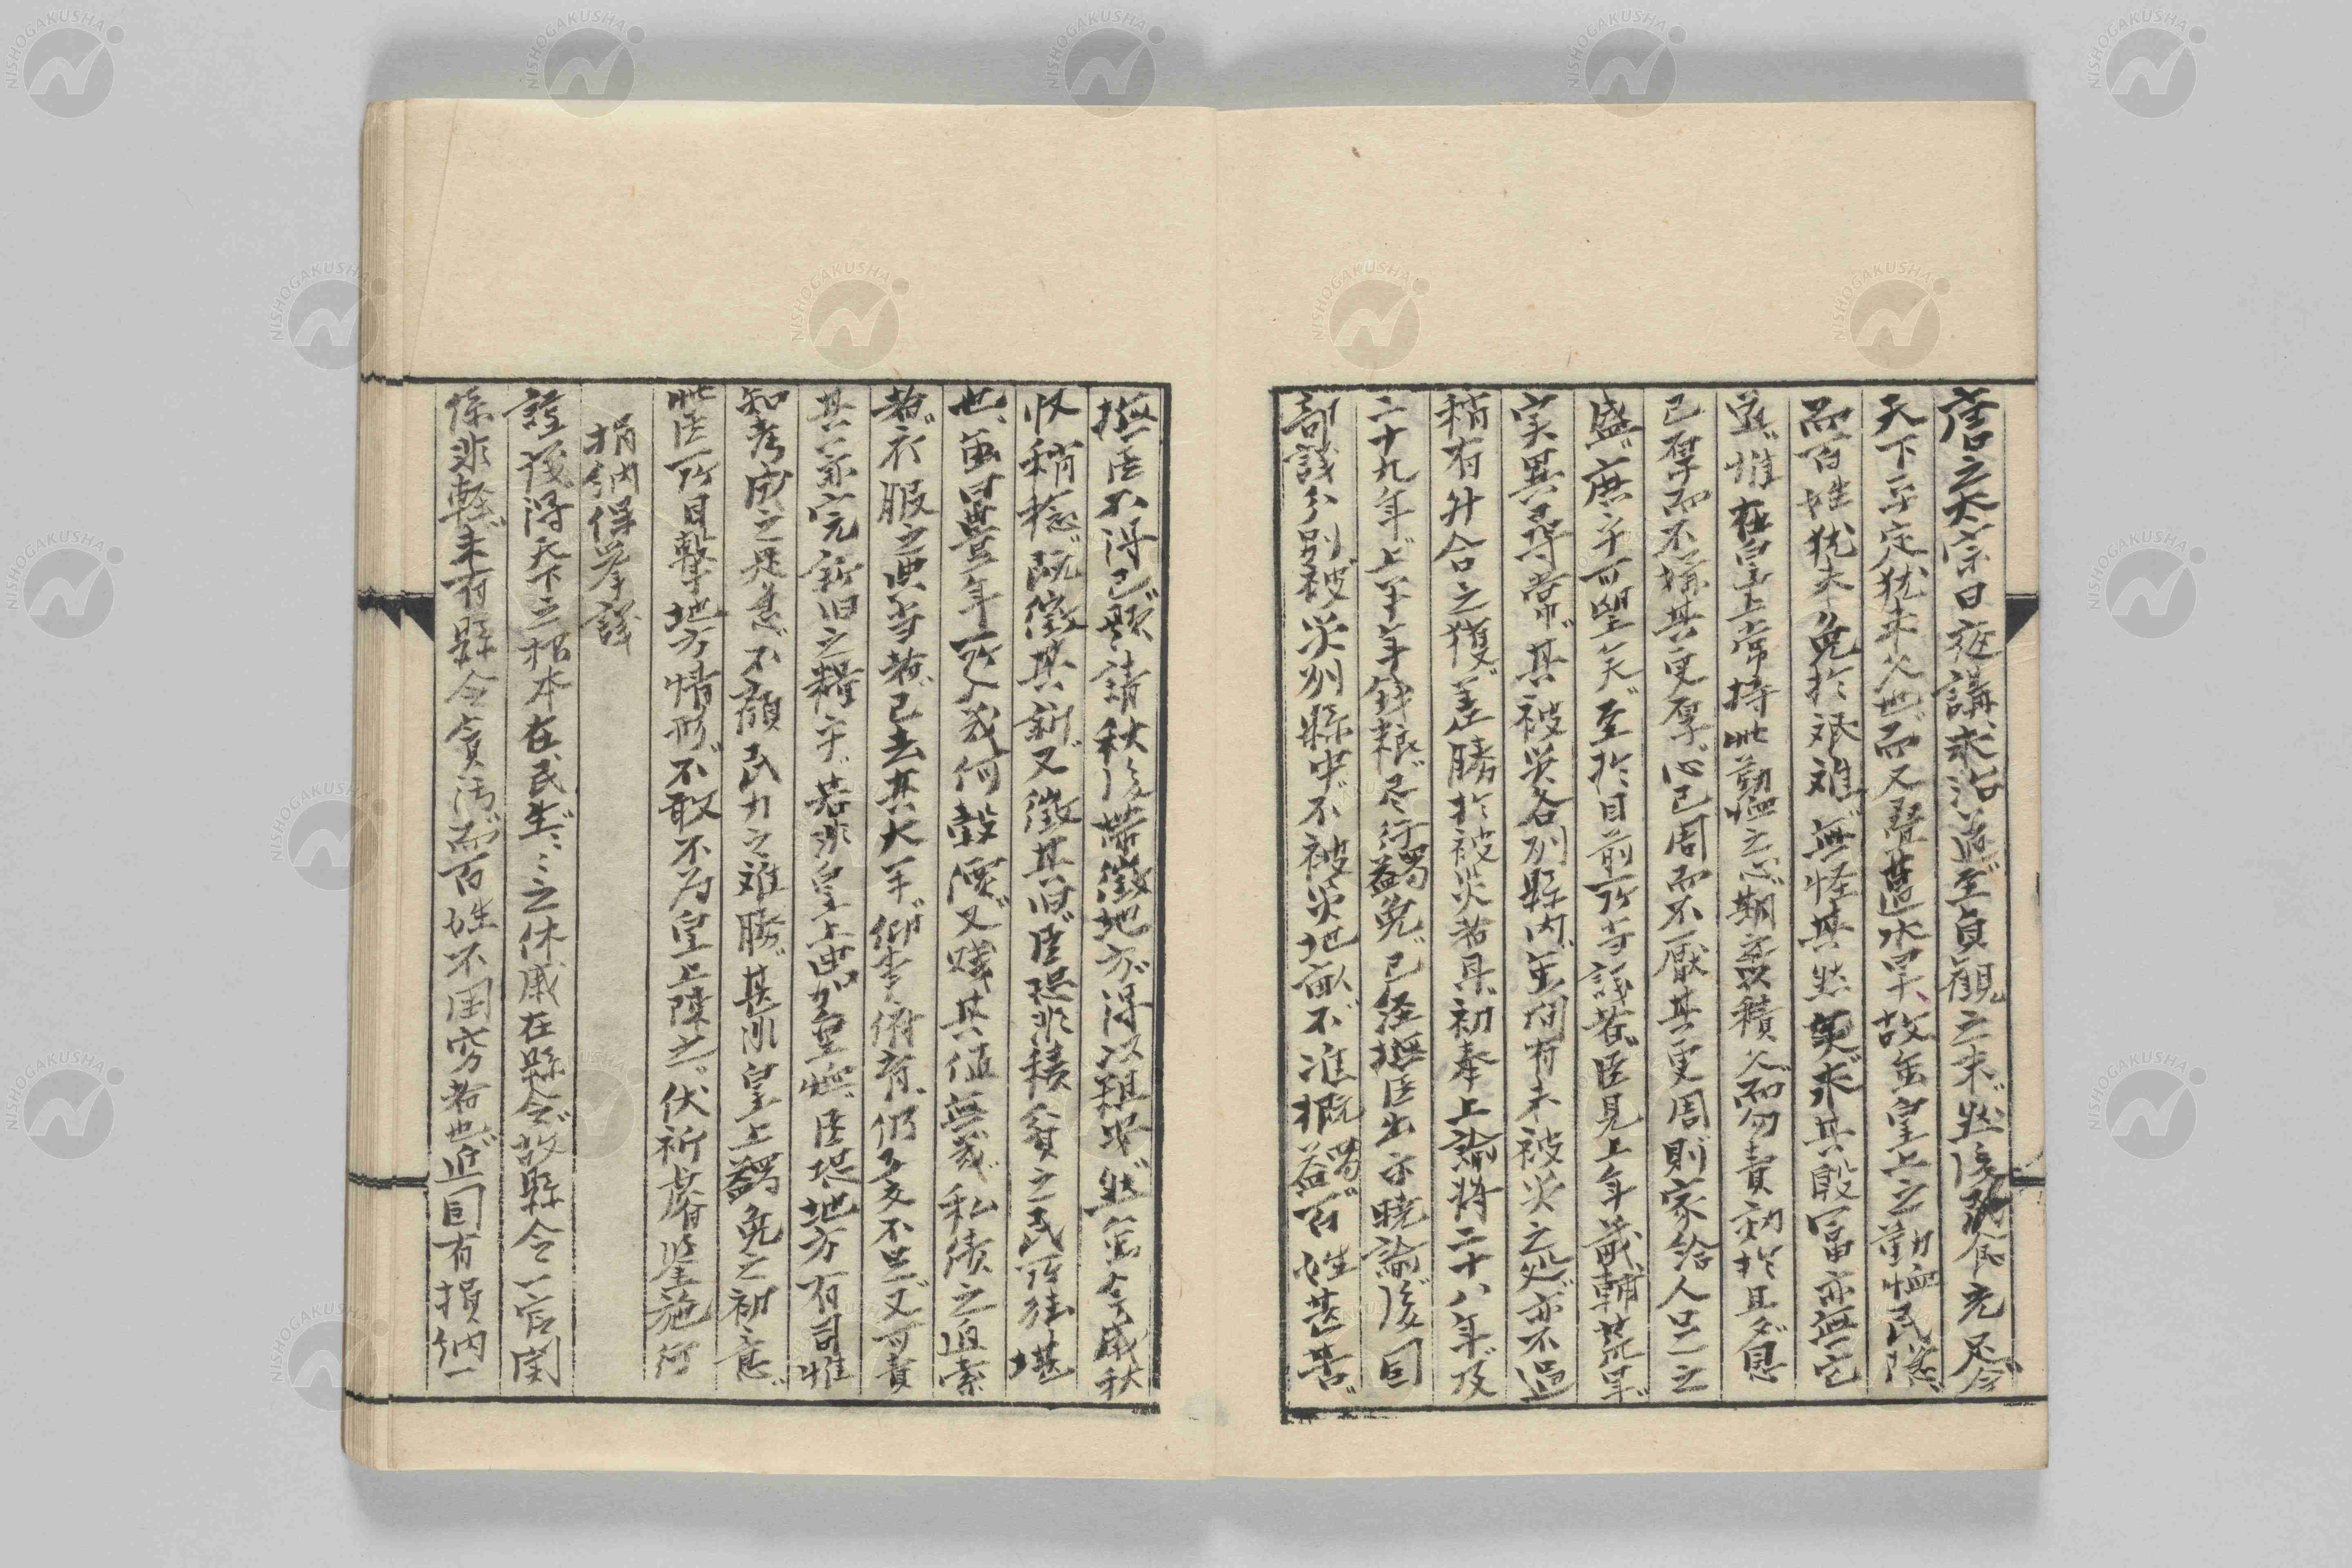 唐之太宗日夜講求治道至貞観之末然後戢食充足今
天下平定猶未久也而又疊遭水旱故虽皇上之勤恤民隐
而百姓犹未免於艰难無怪其然矣求其殷富亦無它
道惟在皇上常持此勤恤之心期益以積久而勿責効於旦夕恩
已厚而不嫌其更厚心已周而不厭其更周則家给人足之
盛庶乎可望矣至於目前所寺議者臣見上年畿輔荒旱
实異尋常其被災各州縣内虽间有未被災之処亦不過
稍有升合之獲差勝於被災者耳初奉上諭将二十八年及
二十九年上半年銭粮尽行蠲免已経撫臣出示暁諭後因
部議分别被災州縣中不被災地畝不准概蠲百姓甚苦
撫臣不得已题請秋後带徵地方得以稍安然虽今歳秋
收稍稔既徵其新又徵其旧臣恐非積貧之民所能堪
也虽曰豊年所入幾何穀價又贱其值無幾私债之迫索
者衣服之典当者已去其大半仰事俯育仍多不足又可責
其以亦完新旧之粮乎若非皇上曲加軫恤臣恐地方有司惟
知考成之是急不顧民力之难勝甚非皇上蠲免之初意
此臣所目撃地方情形不敢不为皇上陳之伏祈睿鑒施行
捐納保挙議
謹議得天下之根本在民生民生之休戚在縣令故縣令一官関
係非軽未有縣令貪汚而百姓不困窮者也近因有捐納一